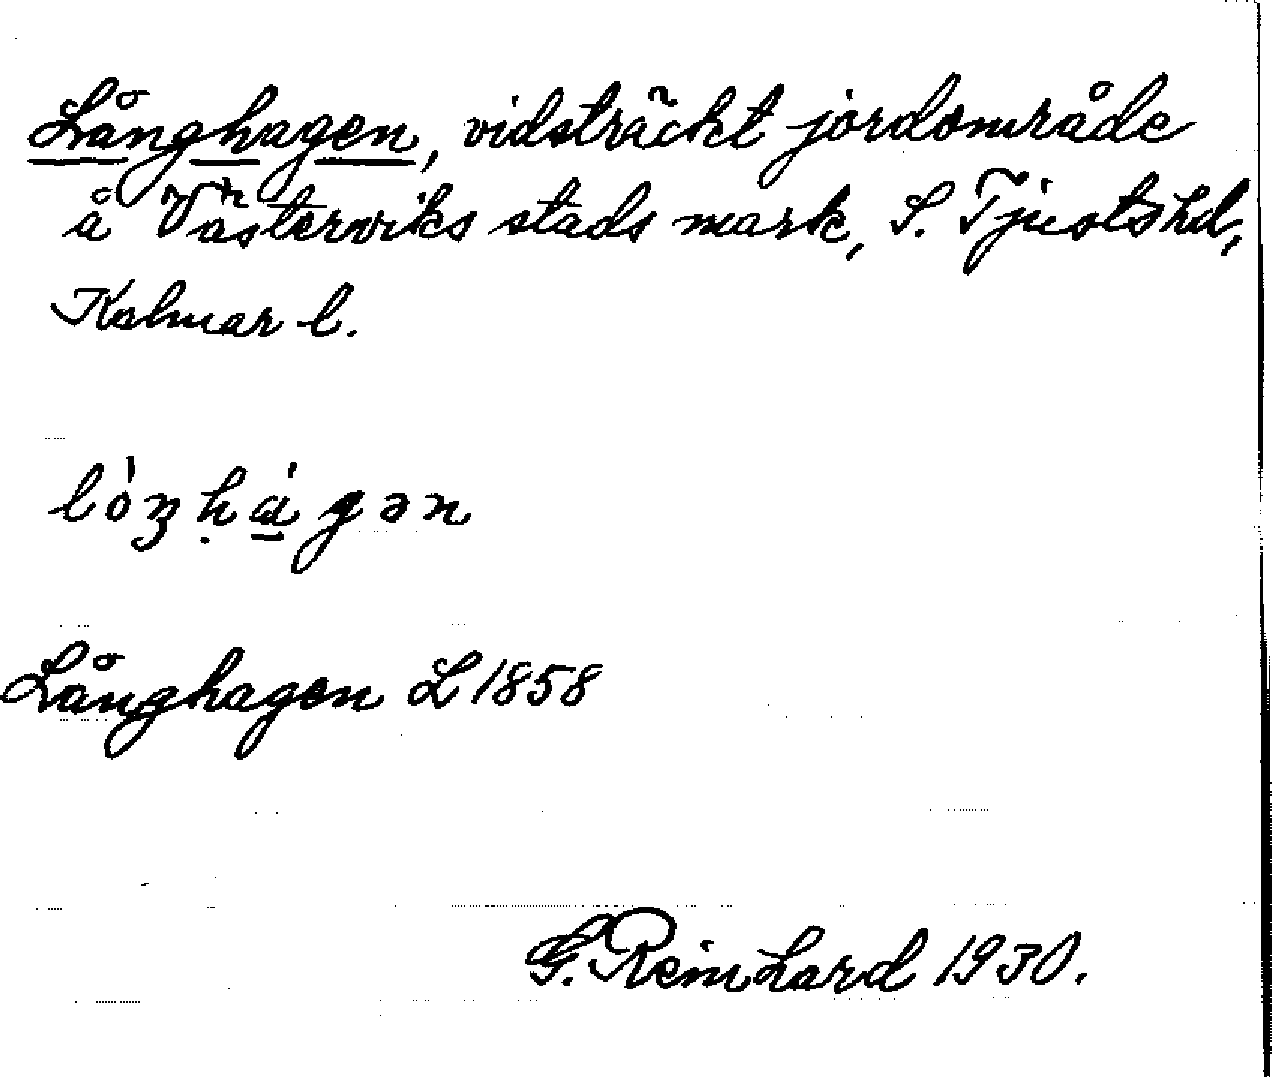 Långhagen, vidsträckt jordområde
å Västerviks stads mark, S. Tjusts hd,
Kalmar l.
lòŋḥá̱gən
Långhagen L 1858
G. Reinhard 1930.